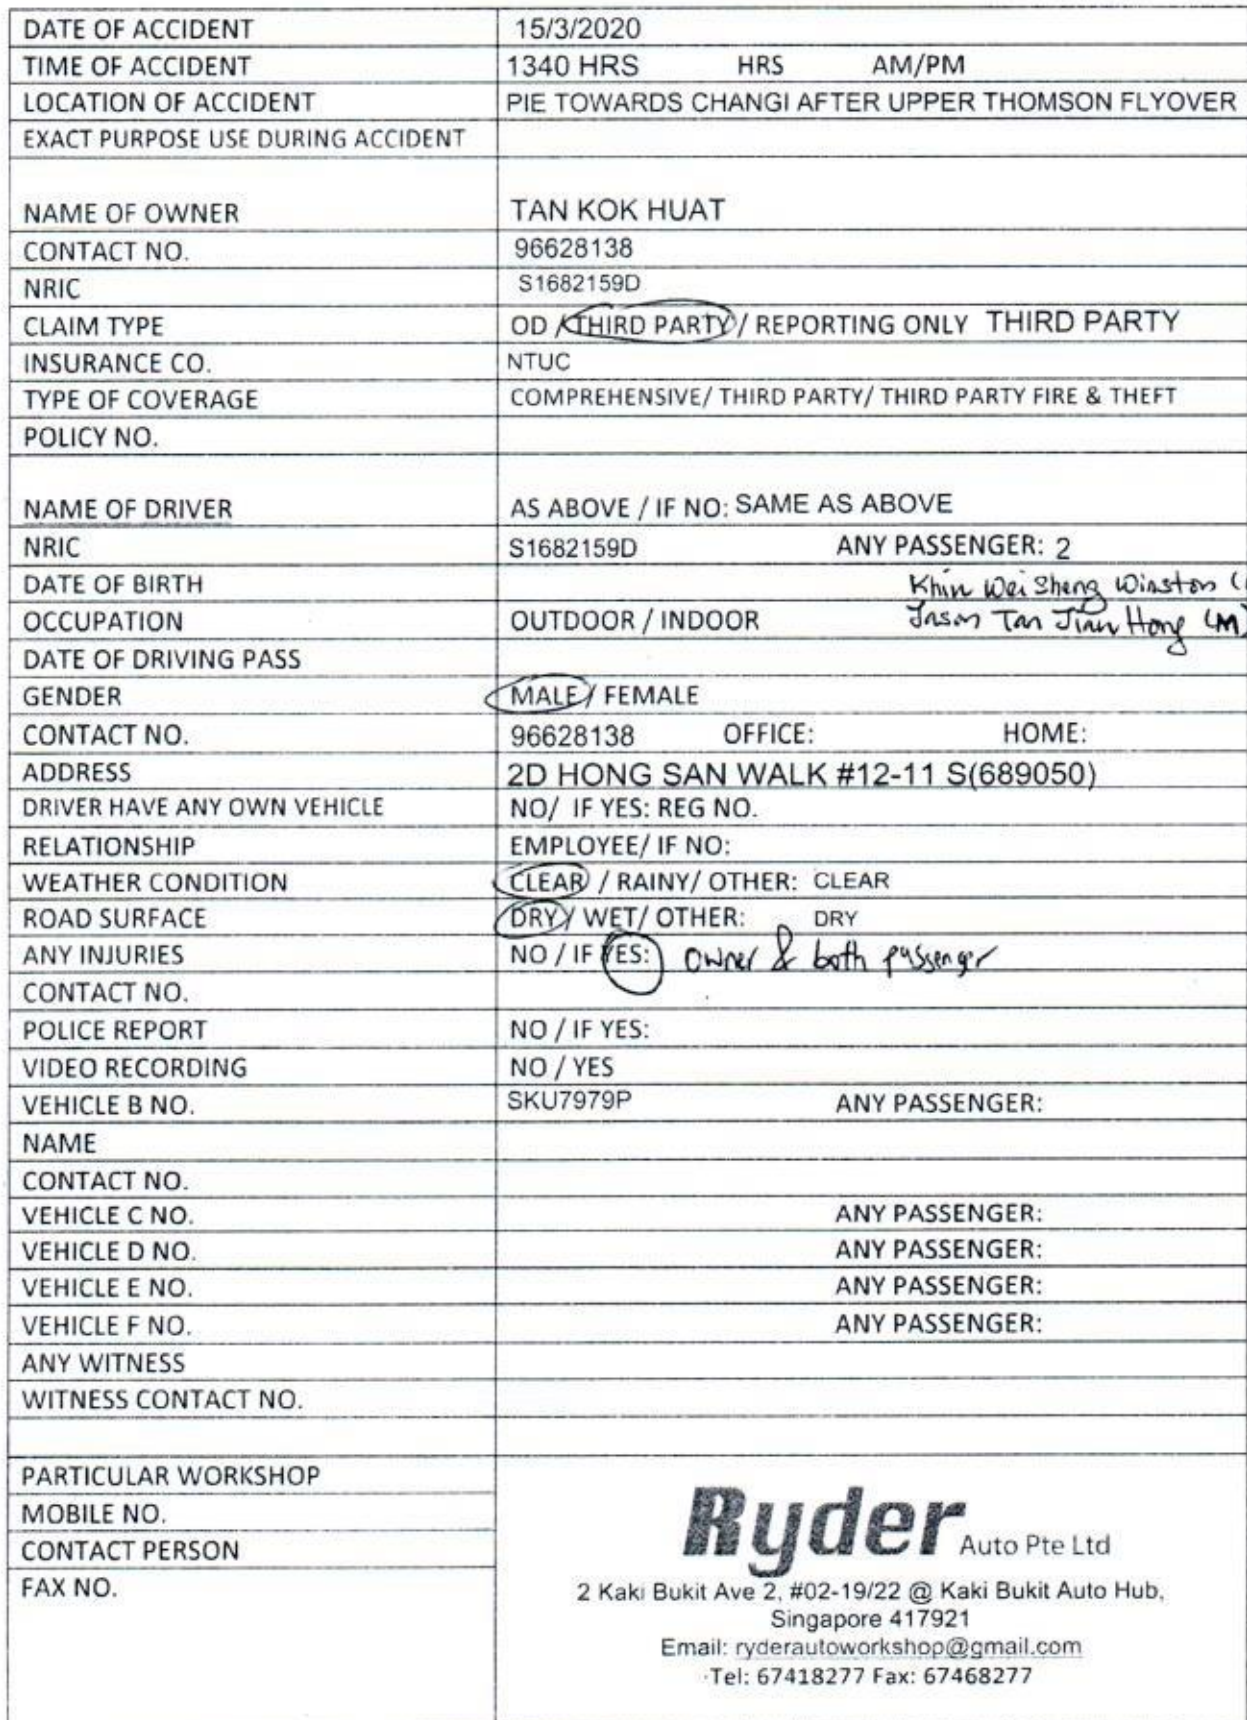 DATE OF ACCIDENT 15/3/2020
TIME OF ACCIDENT 1340 HRS HRS AM/PM
LOCATION OF ACCIDENT PIE TOWARDS CHANGI AFTER UPPER THOMSON FLYOVER
EXACT PURPOSE USE DURING ACCIDENT
NAME OF OWNER TAN KOK HUAT
CONTACT NO. 96628138
NRIC S1682159D
CLAIM TYPE OD / THIRD PARTY / REPORTING ONLY THIRD PARTY
INSURANCE CO. NTUC
TYPE OF COVERAGE COMPREHENSIVE/ THIRD PARTY/ THIRD PARTY FIRE & THEFT
POLICY NO.
NAME OF DRIVER AS ABOVE / IF NO: SAME AS ABOVE
NRIC S1682159D ANY PASSENGER: 2
DATE OF BIRTH Khin Wei Sheng Winston (
OCCUPATION OUTDOOR / INDOOR Jason Tan Jian Hong (M)
DATE OF DRIVING PASS
GENDER MALE / FEMALE
CONTACT NO. 96628138 OFFICE: HOME:
ADDRESS 2D HONG SAN WALK #12-11 S(689050)
DRIVER HAVE ANY OWN VEHICLE NO/ IF YES: REG NO.
RELATIONSHIP EMPLOYEE/ IF NO:
WEATHER CONDITION CLEAR / RAINY/ OTHER: CLEAR
ROAD SURFACE DRY / WET/ OTHER: DRY
ANY INJURIES NO / IF YES: owner & both passenger
CONTACT NO.
POLICE REPORT NO / IF YES:
VIDEO RECORDING NO / YES
VEHICLE B NO. SKU7979P ANY PASSENGER:
NAME
CONTACT NO.
VEHICLE C NO. ANY PASSENGER:
VEHICLE D NO. ANY PASSENGER:
VEHICLE E NO. ANY PASSENGER:
VEHICLE F NO. ANY PASSENGER:
ANY WITNESS
WITNESS CONTACT NO.
PARTICULAR WORKSHOP
MOBILE NO.
CONTACT PERSON
FAX NO.
Ryder Auto Pte Ltd
2 Kaki Bukit Ave 2, #02-19/22 @ Kaki Bukit Auto Hub,
Singapore 417921
Email: ryderautoworkshop@gmail.com
Tel: 67418277 Fax: 67468277